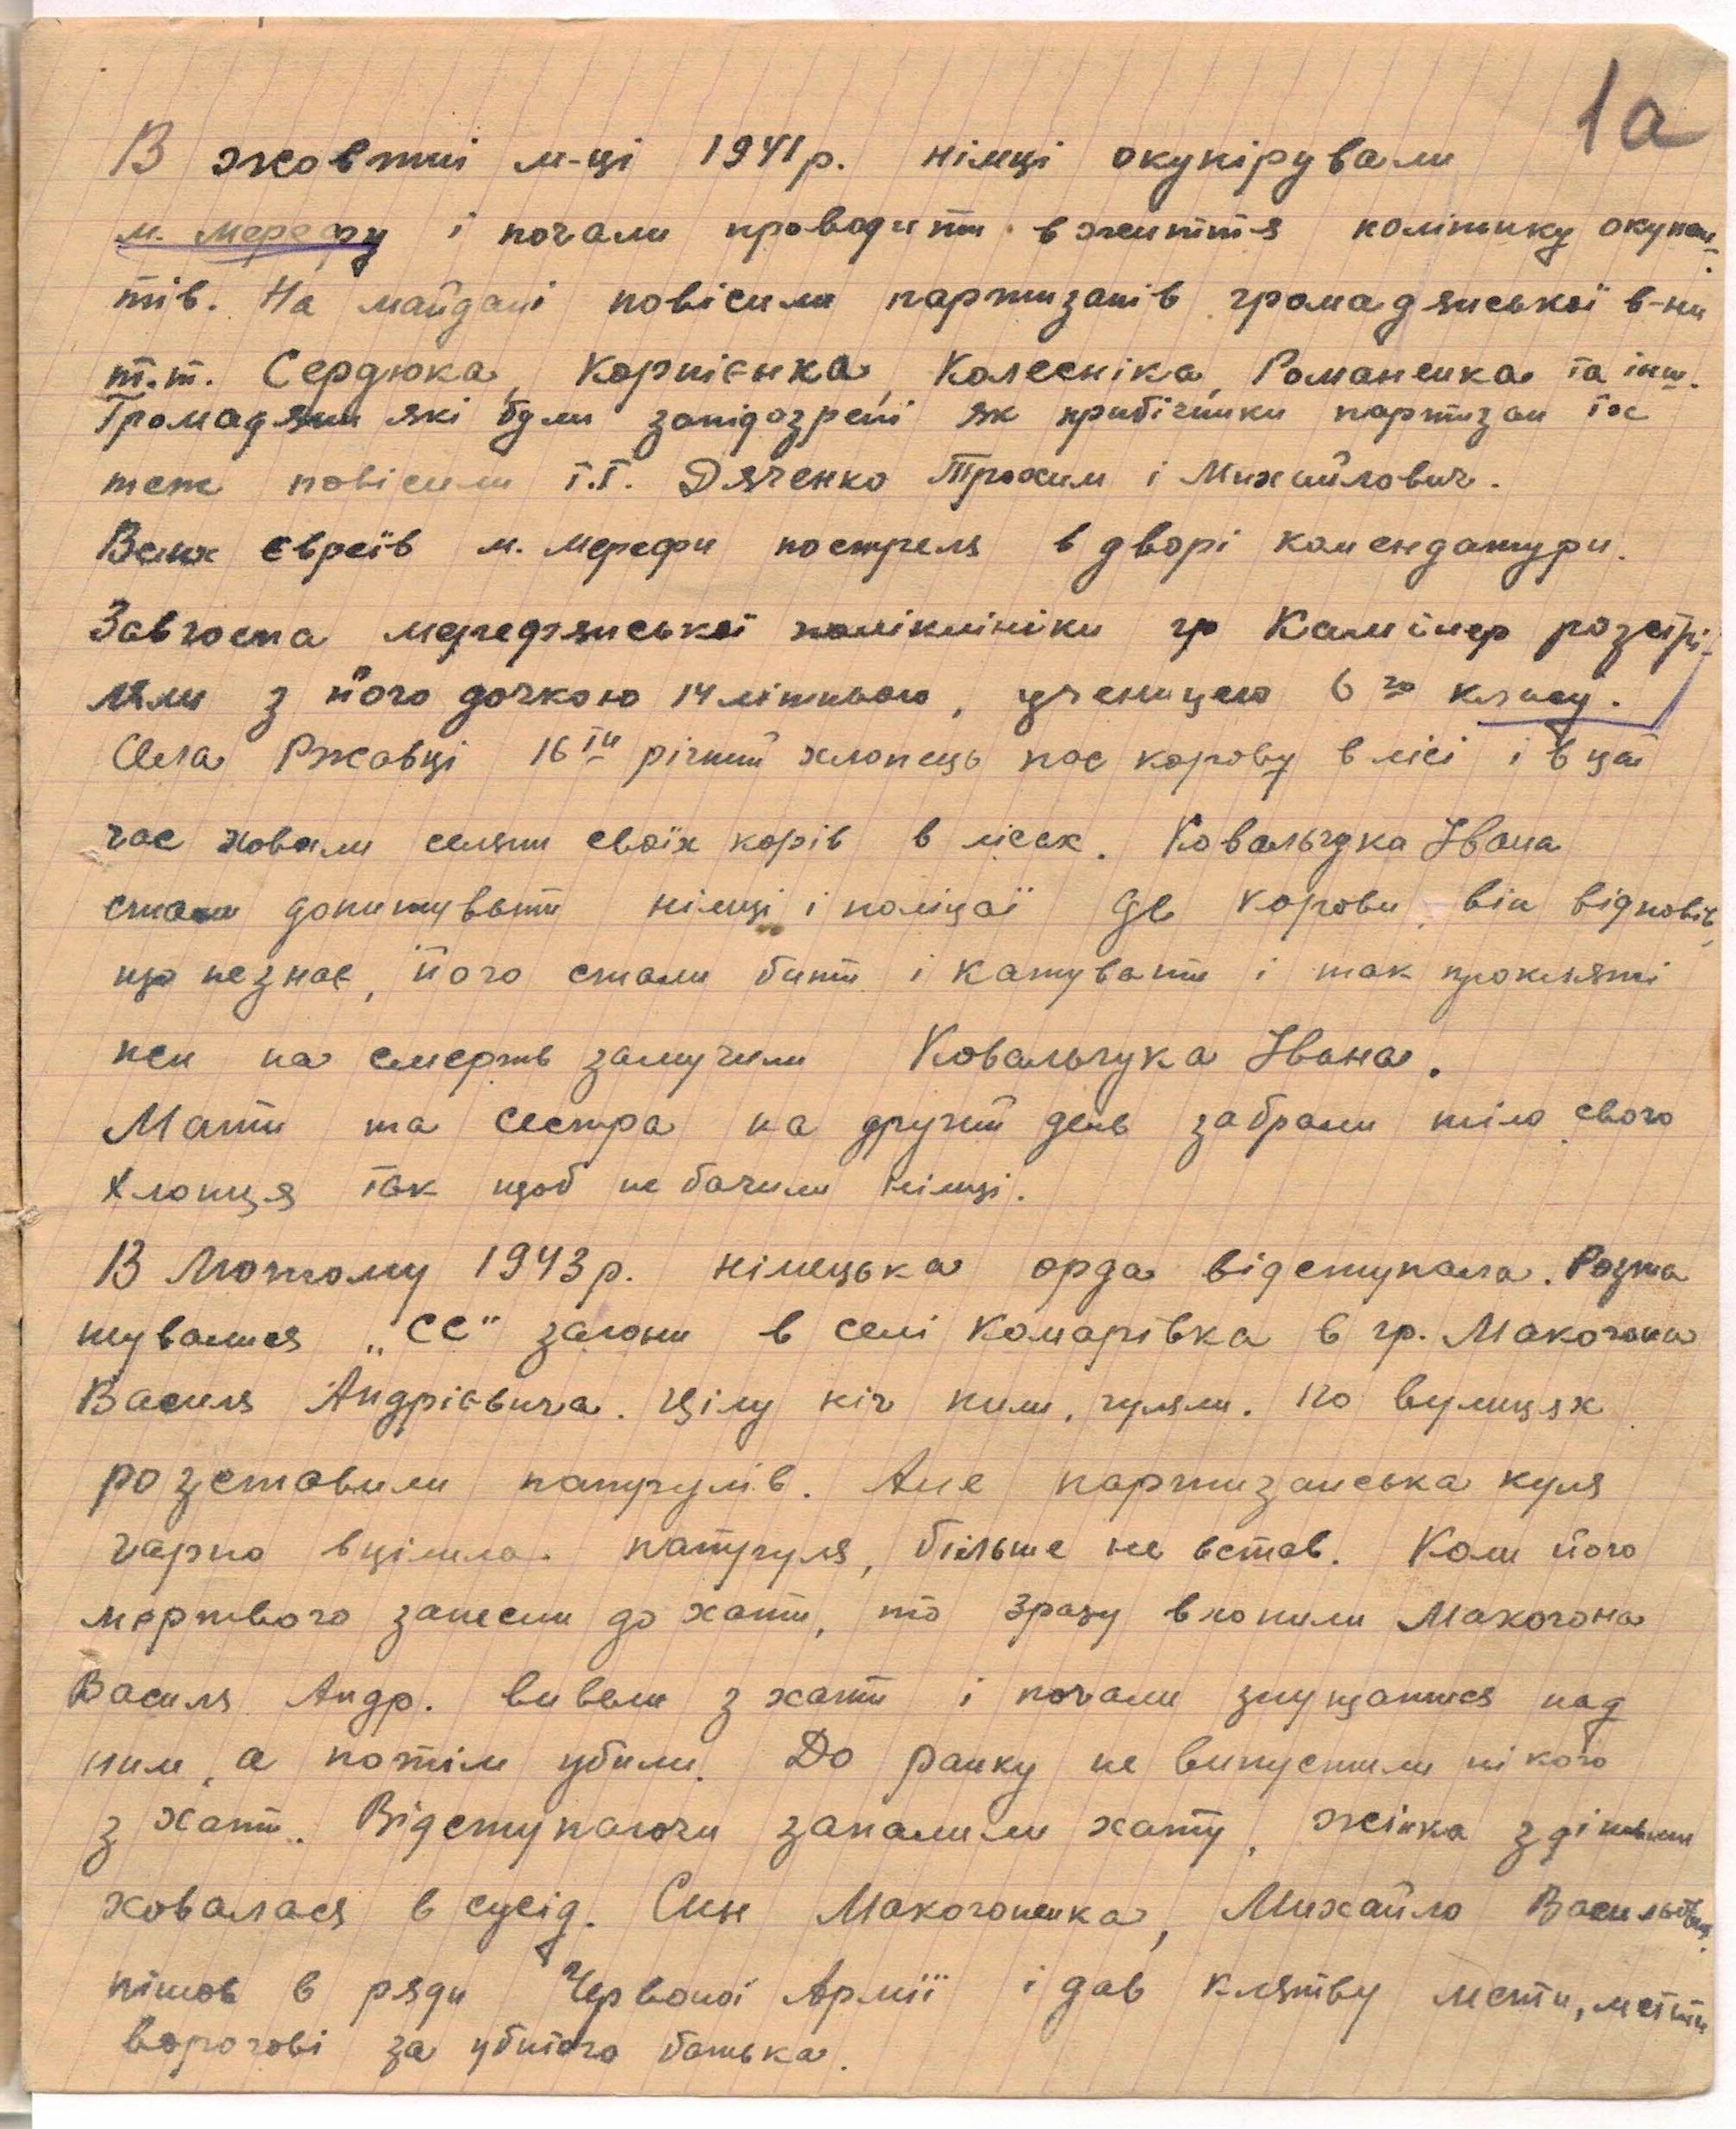 1а
В жовтні м-ці 1941 р. німці окупірували
м. Мерефу і почали проводити в життя політику окупан-
тів. На майдані повісили партизанів громадянської в-ни
т.т. Сердюка, Корнієнка, Колесніка, Романенка та інш.
Громадяни які були запідозрені як прибічники партизан їх
теж повісили т.т. Дяченко Трохим і Михайлович.
Всіх євреїв м. Мерефи постреля в дворі комендатури.
Завгоспа мерефянської поліклініки гр Камінер розстрі-
ляли з його дочкою 14 літньою, ученицею 6 го класу.
Села Ржавці 16 ти річний хлопець пас корову в лісі і в цей
час ховали селяни своїх корів в лісах. Ковальчука Івана
стали допитувати німці і поліцаї де корови, він відповів,
що не знає, його стали бити і катувати і так прокляті
пси на смерть замучили Ковальчука Івана.
Мати та сестра на другий день забрали тіло свого
хлопця так щоб не бачили німці.
В Лютому 1943 р. німецька орда відступала. Розта
шувалися „СС" загони в селі Комарівка в гр. Макогона
Василя Андрієвича. Цілу ніч пили, гуляли. По вулицях
розставили патрулів. Але партизанська куля
гарно вцілила патруля, більше не встав. Коли його
мертвого занесли до хати, то зразу вхопили Макогона
Василя Андр. вивели з хати і почали знущатися над
ним, а потім убили. До ранку не випустили нікого
з хати. Відступаючи запалили хату, жінка з дітьми
ховалася в сусід. Син Макогоненка, Михайло Васильович
пішов в ряди Червоної Армії і дав клятву мсти, мстити
ворогові за убитого батька.